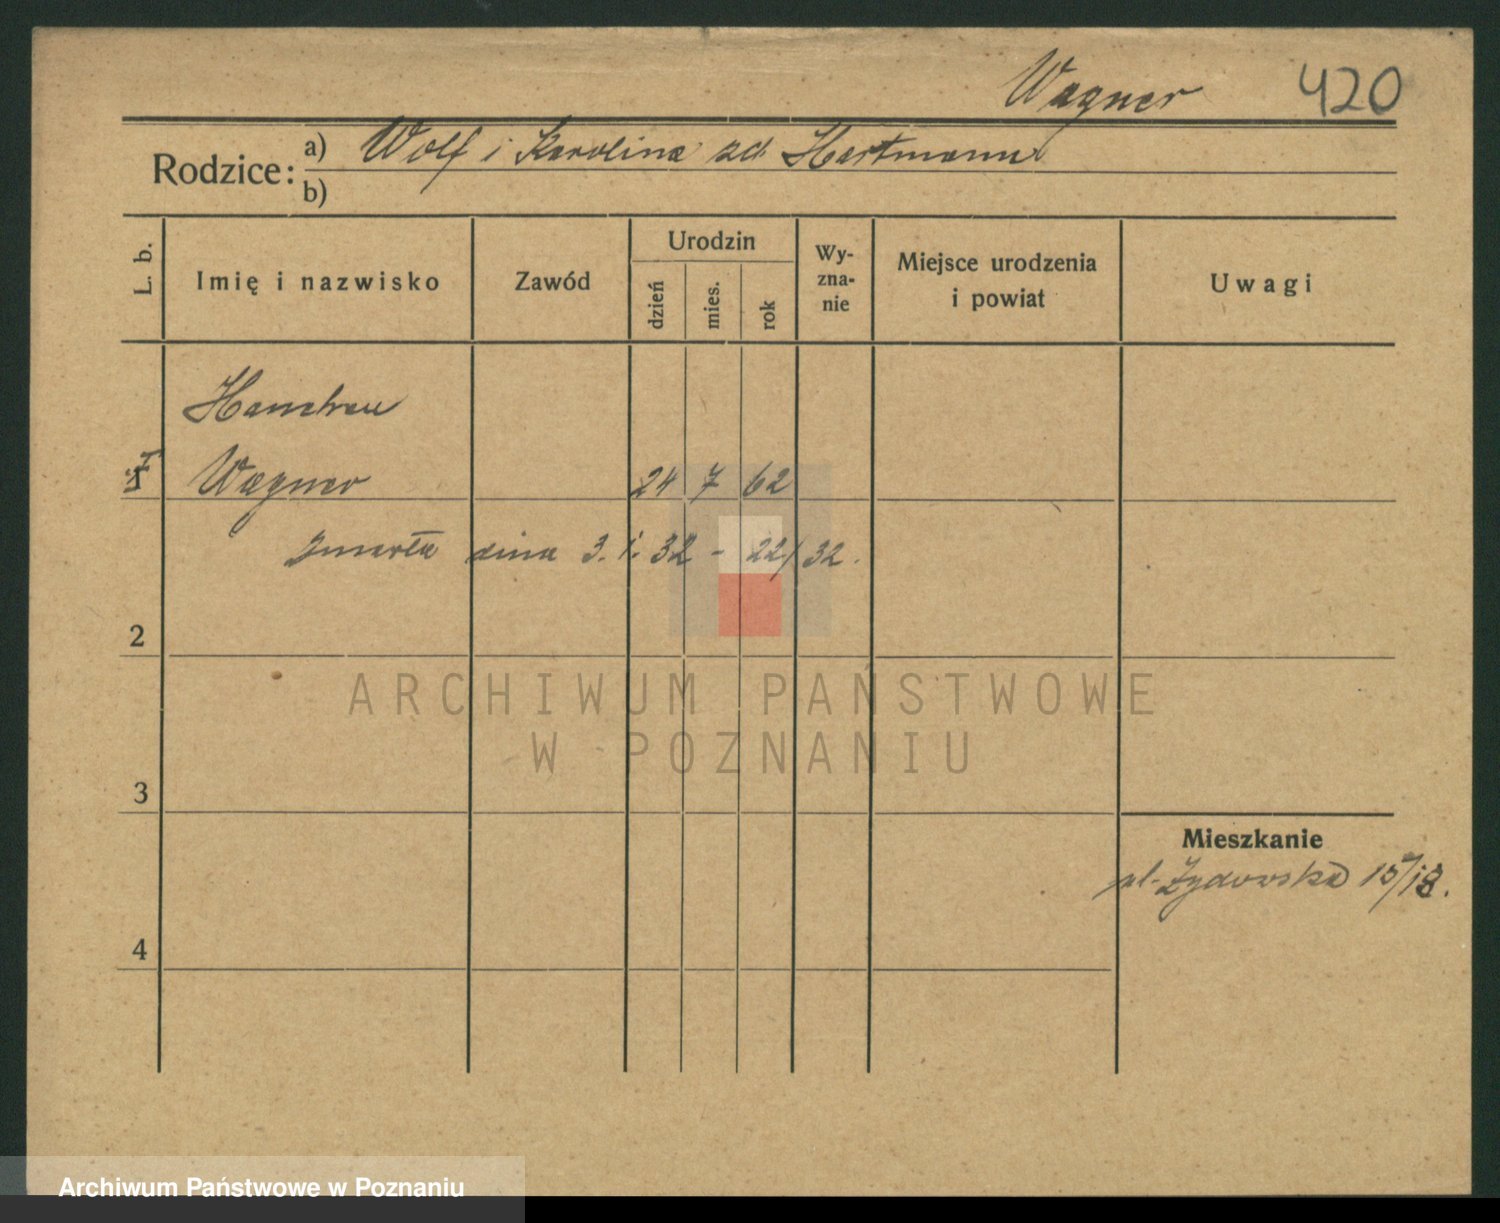 Wagner 420
Rodzice: a) Wolf i Karolina zd Hartmann
b)
L. b.
Imię i nazwisko
Zawód
Urodzin
dzień
mies.
rok
Wy-
zna-
nie
Miejsce urodzenia
i powiat
Uwagi
Hanchen
1 Wagner 24 7 62
zmarła dnia 3. 1. 32 - 22/32.
2
ARCHIWUM PAŃSTWOWE
W POZNANIU
3
Mieszkanie
ul. Żydowska 15/18.
4
Archiwum Państwowe w Poznaniu